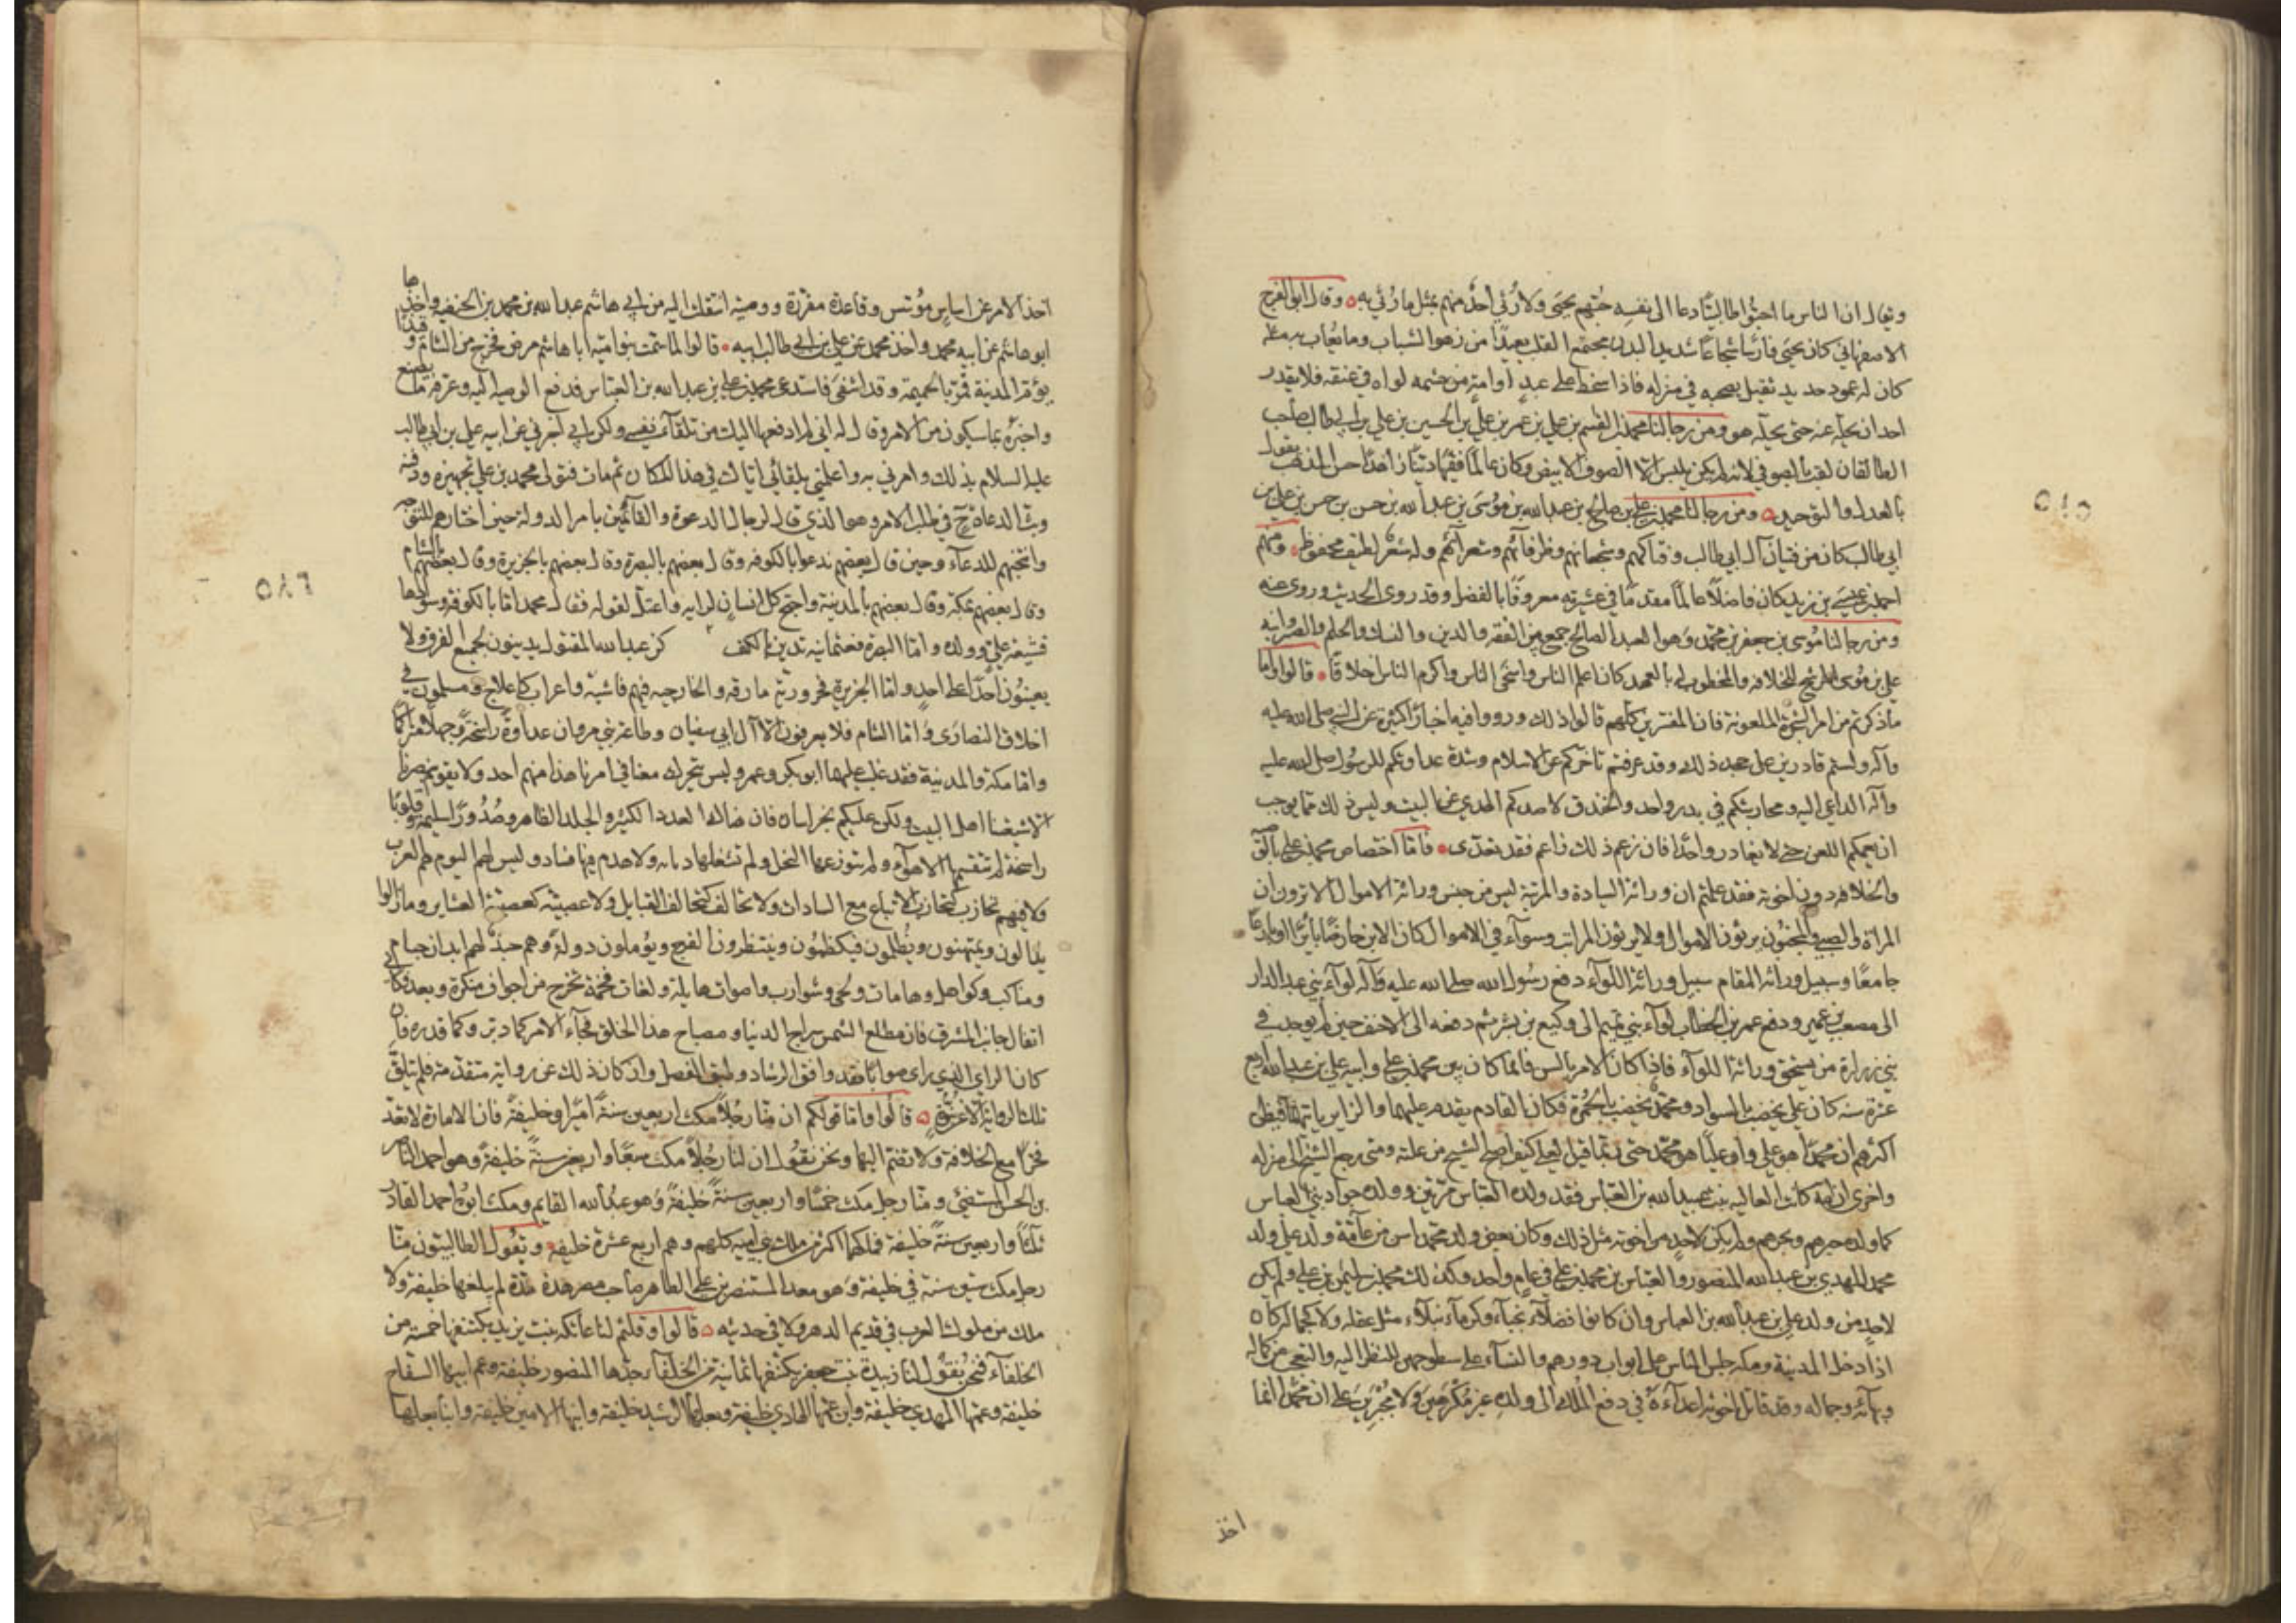 ويقال ان الناس ما احبوا طالبيًا دعا الى نفسه حُبّهم يحيى ولا رُثي احدٌ منهم بمثل ما رُثي به وقال ابو الفرج
الاصفهاني كان يحيى فارسًا شجاعًا شديد البدن مجتمع القلب بعيدًا من زهو الشباب وما يُعاب به مثله
كان له عمود حديد ثقيل يصحبه في منزله فاذا سخط على عبدٍ أو امةٍ من حشمه لواه في عنقه فلا يقدر
احد ان يحلّه عنه حتى يحلّه هو ومن رجالنا محمد بن القسم بن علي بن عمر بن علي بن الحسين بن علي بن ابي طالب صاحب
الطالقان لقب بالصوفي لانه لم يكن يلبس الا الصوف الابيض وكان عالمًا فقيهًا ديّنًا زاهدًا حسن المذهب يقول
بالعدل والتوحيد ومن رجالنا محمد بن علي بن صالح بن عبد الله بن موسى بن عبد الله بن حسن بن حسن بن علي بن
ابي طالب كان من فتيان آل ابي طالب وفتاكهم وشجعانهم وظرفائهم وشعرائهم وله شعر لطيف محفوظ ومنهم
احمد بن عيسى بن زيد كان فاضلًا عالمًا مقدمًا في عشيرته معروفًا بالفضل وقد روى الحديث وروى عنه
ومن رجالنا موسى بن جعفر بن محمد وهو العبد الصالح جمع من الفقه والدين والنسك والحلم والصبر وابنه
علي بن موسى المرشح للخلافة والمخطوب له بالعهد كان اعلم الناس واسخى الناس واكرم الناس اخلاقًا قالوا واما
ما ذكرتم من امر الشجرة الملعونة فان المفسرين كلهم قالوا ذلك ورووا فيه اخبارًا كثيرة عن النبي صلى الله عليه
وآله ولستم قادرين على جحد ذلك وقد عرفتم تاخركم عن الاسلام وشدة عداوتكم للرسول صلى الله عليه
وآله الداعي اليه ومحاربتكم في بدر واحد والخندق وصدكم الهدي عن البيت وليس ذلك مما يوجب
ان يعمكم اللعن حتى لا يغادر واحدًا فان زعم ذلك زاعم فقد تعدّى فاما اختصاص محمد بن علي بالوصية
والخلافة دون اخوته فقد علمتم ان وراثة السيادة والمرتبة ليس من جنس وراثة الاموال الا ترون ان
المراة والصبي والمجنون يرثون الاموال ولا يرثون المراتب وسوآء في الاموال كان الابن حارضًا بائرًا او بارعًا
جامعًا وسبيل وراثة المقام سبيل وراثة اللوآء دفع رسول الله صلى الله عليه وآله لوآء بني عبد الدار
الى مصعب بن عمير ودفع عمر بن الخطاب لوآء بني تميم الى وكيع بن بشر ثم دفعه الى الاحنف حين لم يوجد في
بني زرارة من يستحق وراثة اللوآء فاذا كان الامر بالسن فانما كان بين محمد بن علي وابيه علي بن عبد الله اربع
عشرة سنة كان علي يخضب بالسواد ومحمد يخضب بالحمرة فكان القادم يقدم عليهما والزاير ياتيهما فيظن
اكثرهم ان محمدًا هو علي وان عليًا هو محمد حتى ربما قيل لعلي كيف اصبح الشيخ من علته ومتى رجع الشيخ الى منزله
واخرى ان امه كانت العاليه بنت عبيد الله بن العباس فقد ولده العباس مرتين وولده جواد بني العباس
كما ولده حبرهم وبحرهم ولم يكن لاحد من اخوته مثل ذلك وكان بعض ولد محمد اسن من عامّة ولد علي وولد
محمد المهدي بن عبد الله المنصور والعباس بن محمد بن علي في عام واحد وكذلك محمد بن سليمن بن علي ولم يكن
لاحد من ولد علي بن عبد الله بن العباس وان كانوا فضلاء نجباء وكرمآء نبلاء مثل عقله ولا كجماله كان
اذا دخل المدينة ومكة جلس الناس على ابواب دورهم والنساء على سطوحهن للنظر اليه والتعجب من كماله
وبهائه وجماله وقد قاتل اخوته اعداءه في دفع الملك الى ولده غير مكرهين ولا مجبرين على ان محمدًا انما
اخذ
٥٨٥
اخذ الامر عن اساس مؤسس وقاعدة مقررة ووصية انتقلت اليه من ابي هاشم عبد الله بن محمد بن الحنفيه واخذها
ابو هاشم عن ابيه محمد واخذ محمد عن علي بن ابي طالب ابيه قالوا لما سمّت بنو امية ابا هاشم مرض فخرج من الشام وقيذًا
يؤم المدينة فمر بالحميمة وقد اشفى فاستدعى محمد بن علي بن عبد الله بن العباس فدفع الوصية اليه وعرفه ما يصنع
واخبره بما سيكون من الامر وقال له اني لم ادفعها اليك من تلقاء نفسي ولكن ابي اخبرني عن ابيه علي بن ابي طالب
عليه السلام بذلك وامرني به واعلمني بلقائي اياك في هذا المكان ثم مات فتولى محمد بن علي تجهيزه ودفنه
وبث الدعاة ح في طلب الامر وهو الذي قال لرجال الدعوة والقائمين بامر الدولة حين اختارهم للتوجه
وانتخبهم للدعآء وحين قال بعضهم ندعوا بالكوفه وقال بعضهم بالبصرة وقال بعضهم بالجزيرة وقال بعضهم بالشام
وقال بعضهم بمكة وقال بعضهم بالمدينة واحتج كل انسان لرايه واعتل لقوله فقال محمد اما الكوفة وسوادها
فشيعة علي وولده واما البصرة فعثمانيه تدين بالكف كن عبد الله المقتول يدينون بجميع الفرق ولا
يعينون احدًا على احد واما الجزيرة فحرورية مارقه والخارجيه فيهم فاشية واعراب كاعلاج ومسلمون في
اخلاق النصارى واما الشام فلا يعرفون الا آل ابي سفيان وطاعة بني مروان عداوةً راسخةً وجهلًا متراكمًا
واما مكة والمدينة فقد غلب عليهما ابو بكر وعمر وليس يتحرك معنا في امرنا هذا منهم احد ولا يقوم بنصرنا
الا شيعتنا اهل البيت ولكن عليكم بخراسان فان هناك العدد الكثير والجلد الظاهر وصدورًا سليمة وقلوبًا
راسخة لم تتقسمها الاهوآء ولم تتوزعها النحل ولم تشغلها ديانه ولا هدم فيها فساد وليس لهم اليوم همم العرب
ولا فيهم تحازب كتحازب الاتباع مع السادات ولا تحالف كتحالف القبايل ولا عصبية كعصبية العشاير وما زالوا
ينالون ويمتهنون ويُظلمون فيكظمون وينتظرون الفرج ويؤملون دولة وهم جندٌ لهم ابدان واجسام
ومناكب وكواهل وهامات ولحى وشوارب واصوات هايلة ولغات فخمة تخرج من اجواف منكرة وبعد فكأني
اتفاءل جانب المشرق فان مطلع الشمس سراج الدنيا ومصباح هذا الخلق فجآء الامر كما دبر وكما قدر فان
كان الراي الذي راى صوابًا فقد وافق الرشاد وطبق المفصل وان كان ذلك عن رواية متقدمة فلم يتلق
تلك الرواية الا عن نبوة قالوا واما قولكم ان منّا رجلًا مكث اربعين سنة اميرًا وخليفةً فان الامارة لا تعد
فخرًا مع الخلافة ولا تضم اليها ونحن نقول ان لنا رجلًا مكث سبعًا واربعين سنةً خليفةً وهو احمد الناصر
بن الحسن المستضيئ ومنا رجل مكث خمسًا واربعين سنةً خليفةً وهو عبد الله القايم ومكث ابوه احمد القادر
ثلثًا واربعين سنةً خليفة فملكهما اكثر من ملك بني امية كلهم وهم اربع عشرة خليفة وتقول الطالبيون منّا
رجل مكث ستين سنة خليفة وهو معد المستنصر بن علي الظاهر صاحب مصر هذه مدّة لم يبلغها خليفة ولا
ملك من ملوك العرب في قديم الدهر ولا في حديثه قالوا وقلتم لنا عاتكه بنت يزيد يكتنفها خمسة من
الخلفآء فنحن نقول لنا زبيدة بنت جعفر يكتنفها ثمانية من الخلفآء جدها المنصور خليفة وعم ابيها السفاح
خليفة وعمها المهدي خليفة وابن عمها الهادي خليفة وبعلها الرشيد خليفة وابنها الامين خليفة وابنا بعلها
٥٨٦